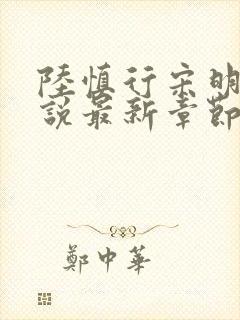 陸慎行宋明
說最新章節
鄭中華